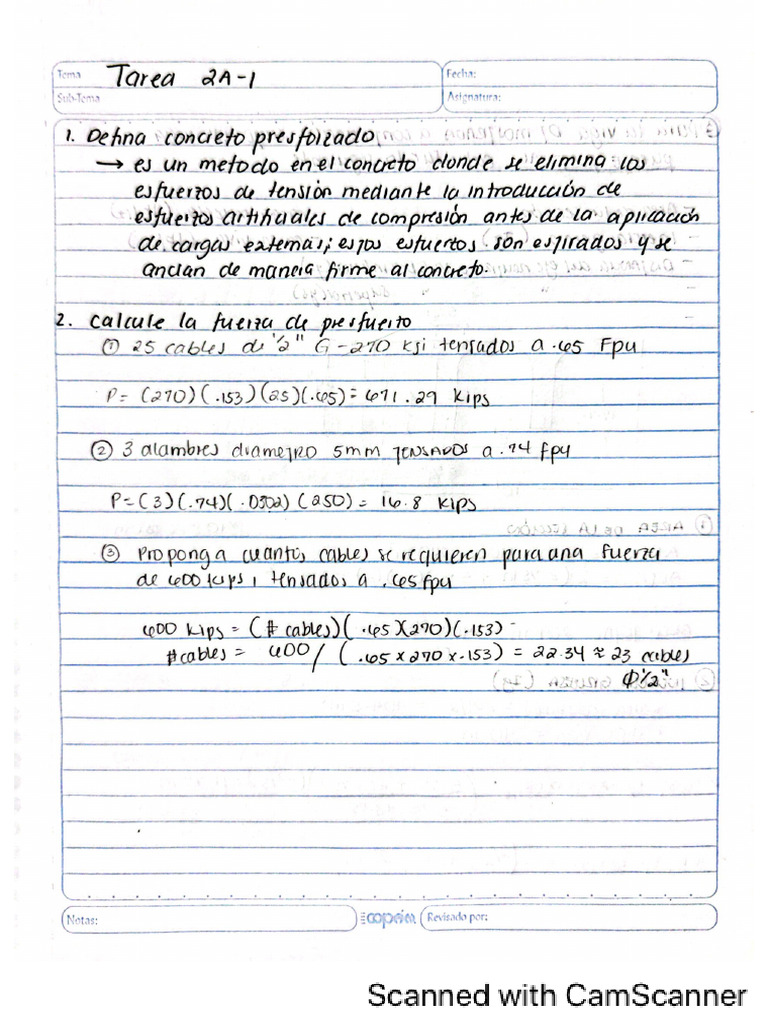 Tema Tarea 2A-1
Fecha:
Sub-Tema
Asignatura:
1. Defina concreto presforzado
→ es un metodo en el concreto donde se elimina los
esfuerzos de tensión mediante la introducción de
esfuerzos artificiales de compresión antes de la aplicación
de cargas externas; estos esfuerzos son estirados y se
anclan de manera firme al concreto.
2. Calcule la fuerza de presfuerzo
① 25 cables de 1/2" G-270 ksi tensados a .65 Fpu
P= (270)(.153)(25)(.65)= 671.29 Kips
② 3 alambres diametro 5mm TENSADOS a .74 fpu
P=(3)(.74)(.0302)(250)= 16.8 kips
③ Proponga cuantos cables se requieren para una fuerza
de 600 kips, tensados a .65 fpu
600 kips = (# cables)(.65)(270)(.153)
# cables = 600/(.65x270x.153) = 22.34 ≈ 23 cables
Φ 1/2"
Notas:
copán
Revisado por:
Scanned with CamScanner